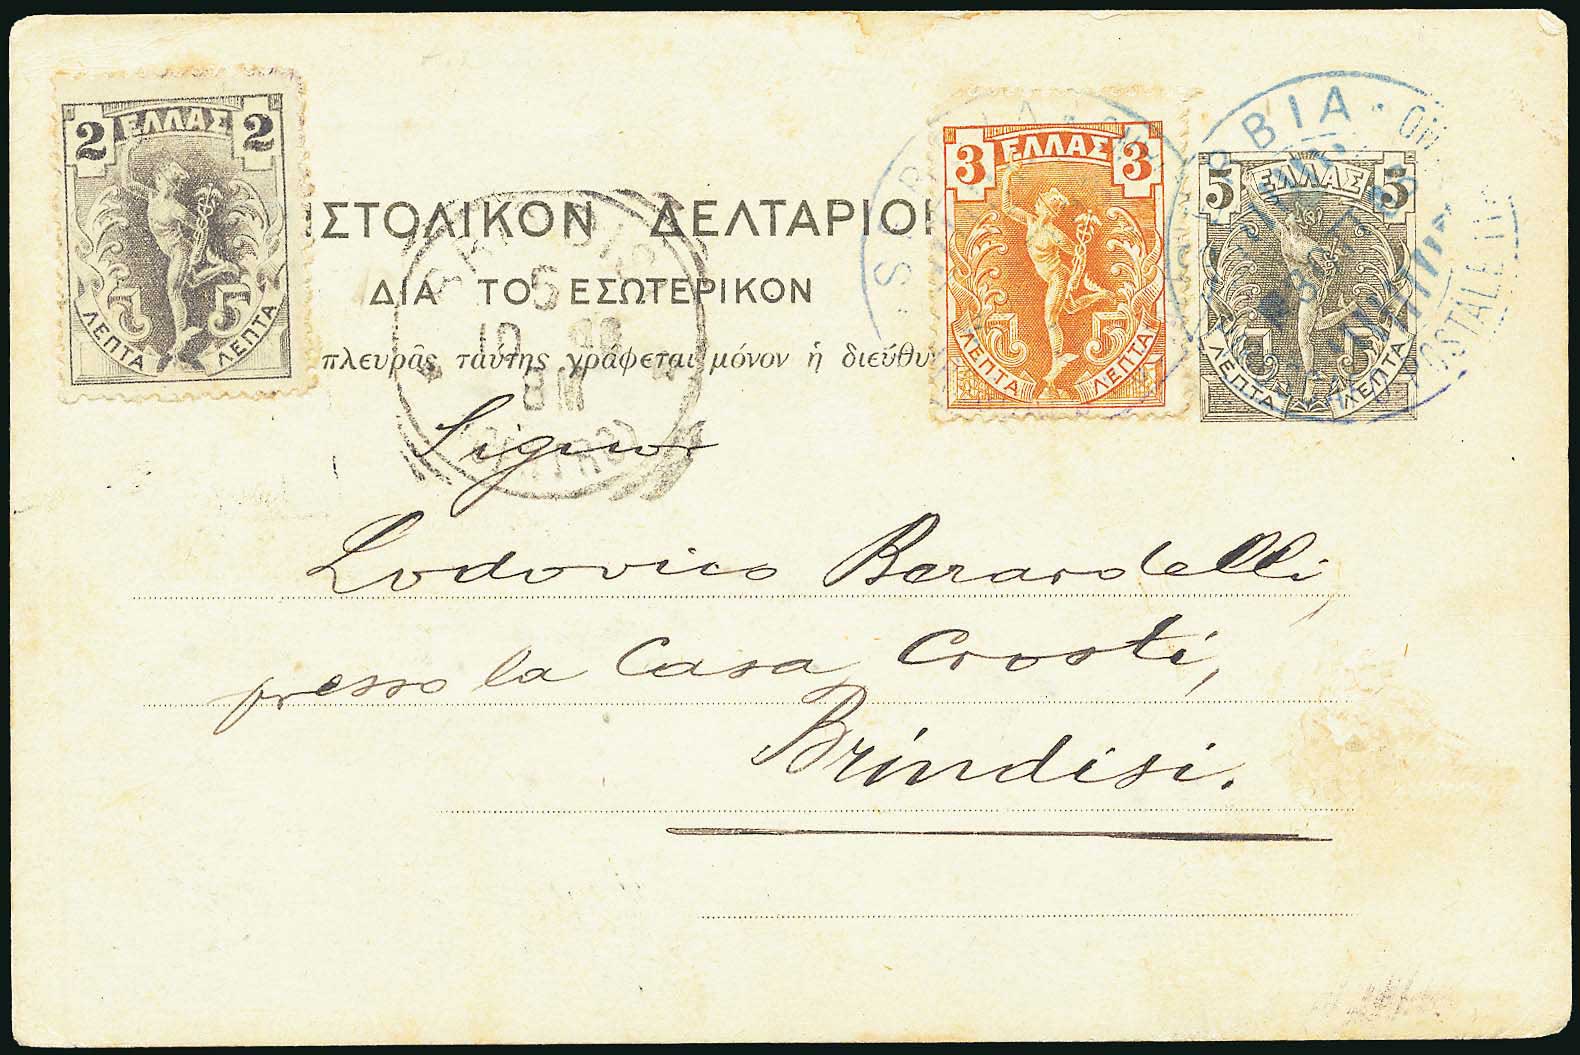 2 ΕΛΛΑΣ 2
5 5
ΛΕΠΤΑ ΛΕΠΤΑ
3 ΕΛΛΑΣ 3
5 5
ΛΕΠΤΑ ΛΕΠΤΑ
5 ΕΛΛΑΣ 5
5 5
ΛΕΠΤΑ ΛΕΠΤΑ
ΙΣΤΟΛΙΚΟΝ ΔΕΛΤΑΡΙΟΝ
ΔΙΑ ΤΟ ΕΣΩΤΕΡΙΚΟΝ
πλευρᾶς ταύτης γράφεται μόνον ἡ διεύθυ
BRINDISI
5
10
8 M
Signor
Lodovico Berardelli,
presso la Casa Crosti,
Brindisi.